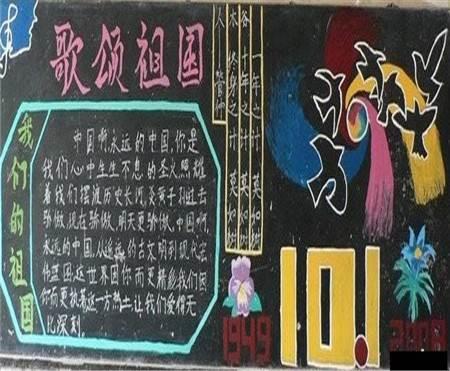 歌颂祖国
我们的祖国
中国啊永远的中国,你是
我们心中生生不息的圣火照耀
着我们摆渡历史长河,炎黄子孙过去
骄傲,现在骄傲,明天更骄傲,中国啊,
永远的中国,从遥远的古文明到现代宏
伟蓝图,这世界因你而更精彩我们因
你而更执着这一方热土让我们爱得无
比深刻.
一年之计 莫如树
谷 十年之计 莫如树
木 终身之计 莫如树
人 管仲
1949
10.1
2008